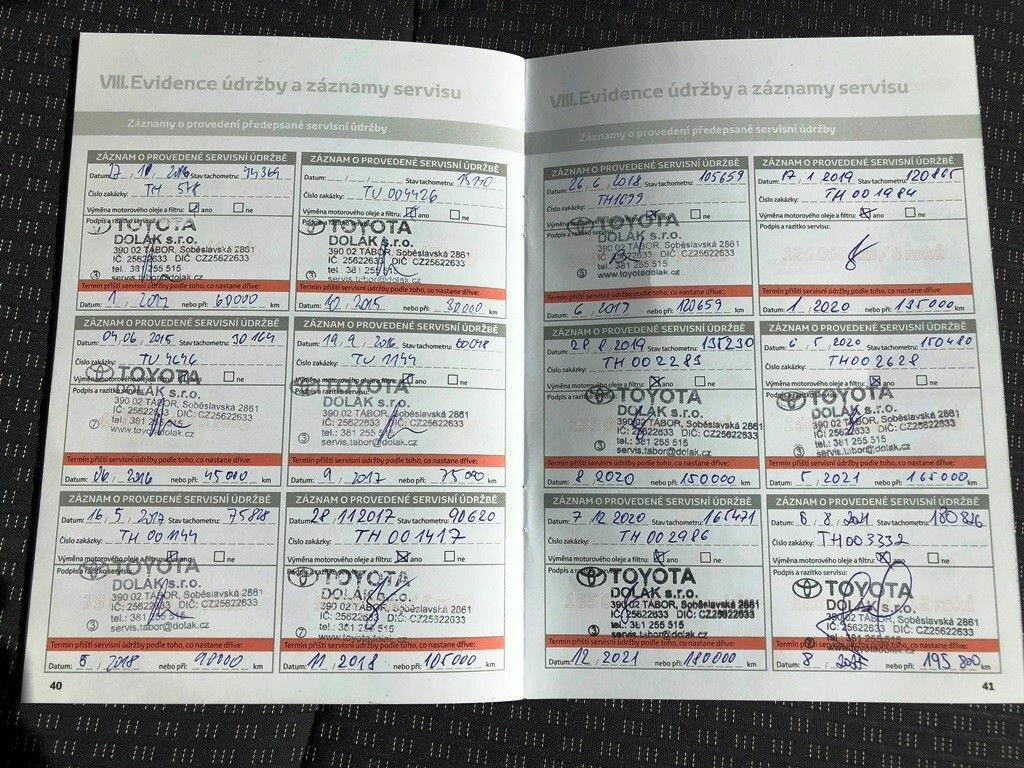 VIII. Evidence údržby a záznamy servisu
Záznamy o provedení předepsané servisní údržby
ZÁZNAM O PROVEDENÉ SERVISNÍ ÚDRŽBĚ
Datum: Stav tachometru:
Číslo zakázky: TH
Výměna motorového oleje a filtru: ano ne
Podpis a razítko servisu:
TOYOTA
DOLÁK s.r.o.
390 02 TÁBOR, Soběslavská 2861
IČ: 25622633 DIČ: CZ25622633
tel.: 381 255 515
servis.tabor@dolak.cz
3
Termín příští servisní údržby podle toho, co nastane dříve:
Datum: 1 / 2017 nebo při: 60000 km
ZÁZNAM O PROVEDENÉ SERVISNÍ ÚDRŽBĚ
Datum: Stav tachometru:
Číslo zakázky: TU 004426
Výměna motorového oleje a filtru: ano ne
TOYOTA
DOLÁK s.r.o.
390 02 TÁBOR, Soběslavská 2861
IČ: 25622633 DIČ: CZ25622633
tel.: 381 255 515
servis.tabor@dolak.cz
3
Termín příští servisní údržby podle toho, co nastane dříve:
Datum: 2015 nebo při: 30000 km
ZÁZNAM O PROVEDENÉ SERVISNÍ ÚDRŽBĚ
Datum: 04, 06, 2015 Stav tachometru: 30164
Číslo zakázky: TU 4646
Výměna motorového oleje a filtru: ne
TOYOTA
Podpis a razítko
DOLÁK s.r.o.
390 02 TÁBOR, Soběslavská 2861
IČ: 25622633 DIČ: CZ25622633
tel.: 381 255 515
www.toyotadolak.cz
7
Termín příští servisní údržby podle toho, co nastane dříve:
Datum: 06, 2016 nebo při: 45000 km
ZÁZNAM O PROVEDENÉ SERVISNÍ ÚDRŽBĚ
Datum: 19, 9, 2016 Stav tachometru:
Číslo zakázky: TU 1144
Výměna motorového oleje a filtru: ano ne
TOYOTA
DOLÁK s.r.o.
390 02 TÁBOR, Soběslavská 2861
IČ: 25622633 DIČ: CZ25622633
tel.: 381 255 515
servis.tabor@dolak.cz
3
Termín příští servisní údržby podle toho, co nastane dříve:
Datum: 9, 2017 nebo při: 75000 km
ZÁZNAM O PROVEDENÉ SERVISNÍ ÚDRŽBĚ
Datum: 16, 5, 2017 Stav tachometru: 75828
Číslo zakázky: TH 001144
Výměna motorového oleje a filtru: ano ne
Podpis a razítko servisu:
TOYOTA
DOLÁK s.r.o.
390 02 TÁBOR, Soběslavská 2861
IČ: 25622633 DIČ: CZ25622633
tel.: 381 255 515
servis.tabor@dolak.cz
3
Termín příští servisní údržby podle toho, co nastane dříve:
Datum: 5, 2018 nebo při: km
ZÁZNAM O PROVEDENÉ SERVISNÍ ÚDRŽBĚ
Datum: 28, 11 2017 Stav tachometru: 90620
Číslo zakázky: TH 001417
Výměna motorového oleje a filtru: ano ne
Podpis a razítko servisu:
TOYOTA
DOLÁK s.r.o.
390 02 TÁBOR, Soběslavská 2861
IČ: 25622633 DIČ: CZ25622633
tel.: 381 255 515
www.toyotadolak.cz
7
Termín příští servisní údržby podle toho, co nastane dříve:
Datum: 11, 2018 nebo při: 105000 km
40
VIII. Evidence údržby a záznamy servisu
Záznamy o provedení předepsané servisní údržby
ZÁZNAM O PROVEDENÉ SERVISNÍ ÚDRŽBĚ
Datum: 26, 6, 2018 Stav tachometru: 105659
Číslo zakázky: TH1699
Výměna motorového oleje a filtru: ne
Podpis a razítko servisu:
TOYOTA
DOLÁK s.r.o.
390 02 TÁBOR, Soběslavská 2861
IČ: 25622633 DIČ: CZ25622633
tel.: 381 255 515
www.toyotadolak.cz
5
Termín příští servisní údržby podle toho, co nastane dříve:
Datum: 6, nebo při: 120659 km
ZÁZNAM O PROVEDENÉ SERVISNÍ ÚDRŽBĚ
Datum: 17, 1 2019 Stav tachometru: 120865
Číslo zakázky: TH 001984
Výměna motorového oleje a filtru: ano ne
Podpis a razítko servisu:
Termín příští servisní údržby podle toho, co nastane dříve:
Datum: 1, 2020 nebo při: 135000 km
ZÁZNAM O PROVEDENÉ SERVISNÍ ÚDRŽBĚ
Datum: 28 8 2019 Stav tachometru: 135230
Číslo zakázky: TH 002283
Výměna motorového oleje a filtru: ano ne
Podpis a razítko servisu:
TOYOTA
DOLÁK s.r.o.
390 02 TÁBOR, Soběslavská 2861
IČ: 25622633 DIČ: CZ25622633
tel.: 381 255 515
servis.tabor@dolak.cz
3
Termín příští servisní údržby podle toho, co nastane dříve:
Datum: 8 2020 nebo při: 150000 km
ZÁZNAM O PROVEDENÉ SERVISNÍ ÚDRŽBĚ
Datum: 6, 5, 2020 Stav tachometru: 150480
Číslo zakázky: TH00 2628
Výměna motorového oleje a filtru: ano ne
Podpis a razítko servisu:
TOYOTA
DOLÁK s.r.o.
390 02 TÁBOR, Soběslavská 2861
IČ: 25622633 DIČ: CZ25622633
tel.: 381 255 515
servis.tabor@dolak.cz
3
Termín příští servisní údržby podle toho, co nastane dříve:
Datum: 5, 2021 nebo při: 165000 km
ZÁZNAM O PROVEDENÉ SERVISNÍ ÚDRŽBĚ
Datum: 7, 12 2020 Stav tachometru: 165471
Číslo zakázky: TH 002986
Výměna motorového oleje a filtru: ano ne
Podpis a razítko servisu:
TOYOTA
DOLÁK s.r.o.
390 02 TÁBOR, Soběslavská 2861
IČ: 25622633 DIČ: CZ25622633
tel.: 381 255 515
servis.tabor@dolak.cz
3
Termín příští servisní údržby podle toho, co nastane dříve:
Datum: 12, 2021 nebo při: 180000 km
ZÁZNAM O PROVEDENÉ SERVISNÍ ÚDRŽBĚ
Datum: 8 2021 Stav tachometru:
Číslo zakázky: TH003332
Výměna motorového oleje a filtru: ano ne
Podpis a razítko servisu:
TOYOTA
DOLÁK s.r.o.
390 02 TÁBOR, Soběslavská 2861
IČ: 25622633 DIČ: CZ25622633
tel.: 381 255 515
www.toyotadolak.cz
Termín příští servisní údržby podle toho, co nastane dříve:
Datum: 8 nebo při: 195 800 km
41